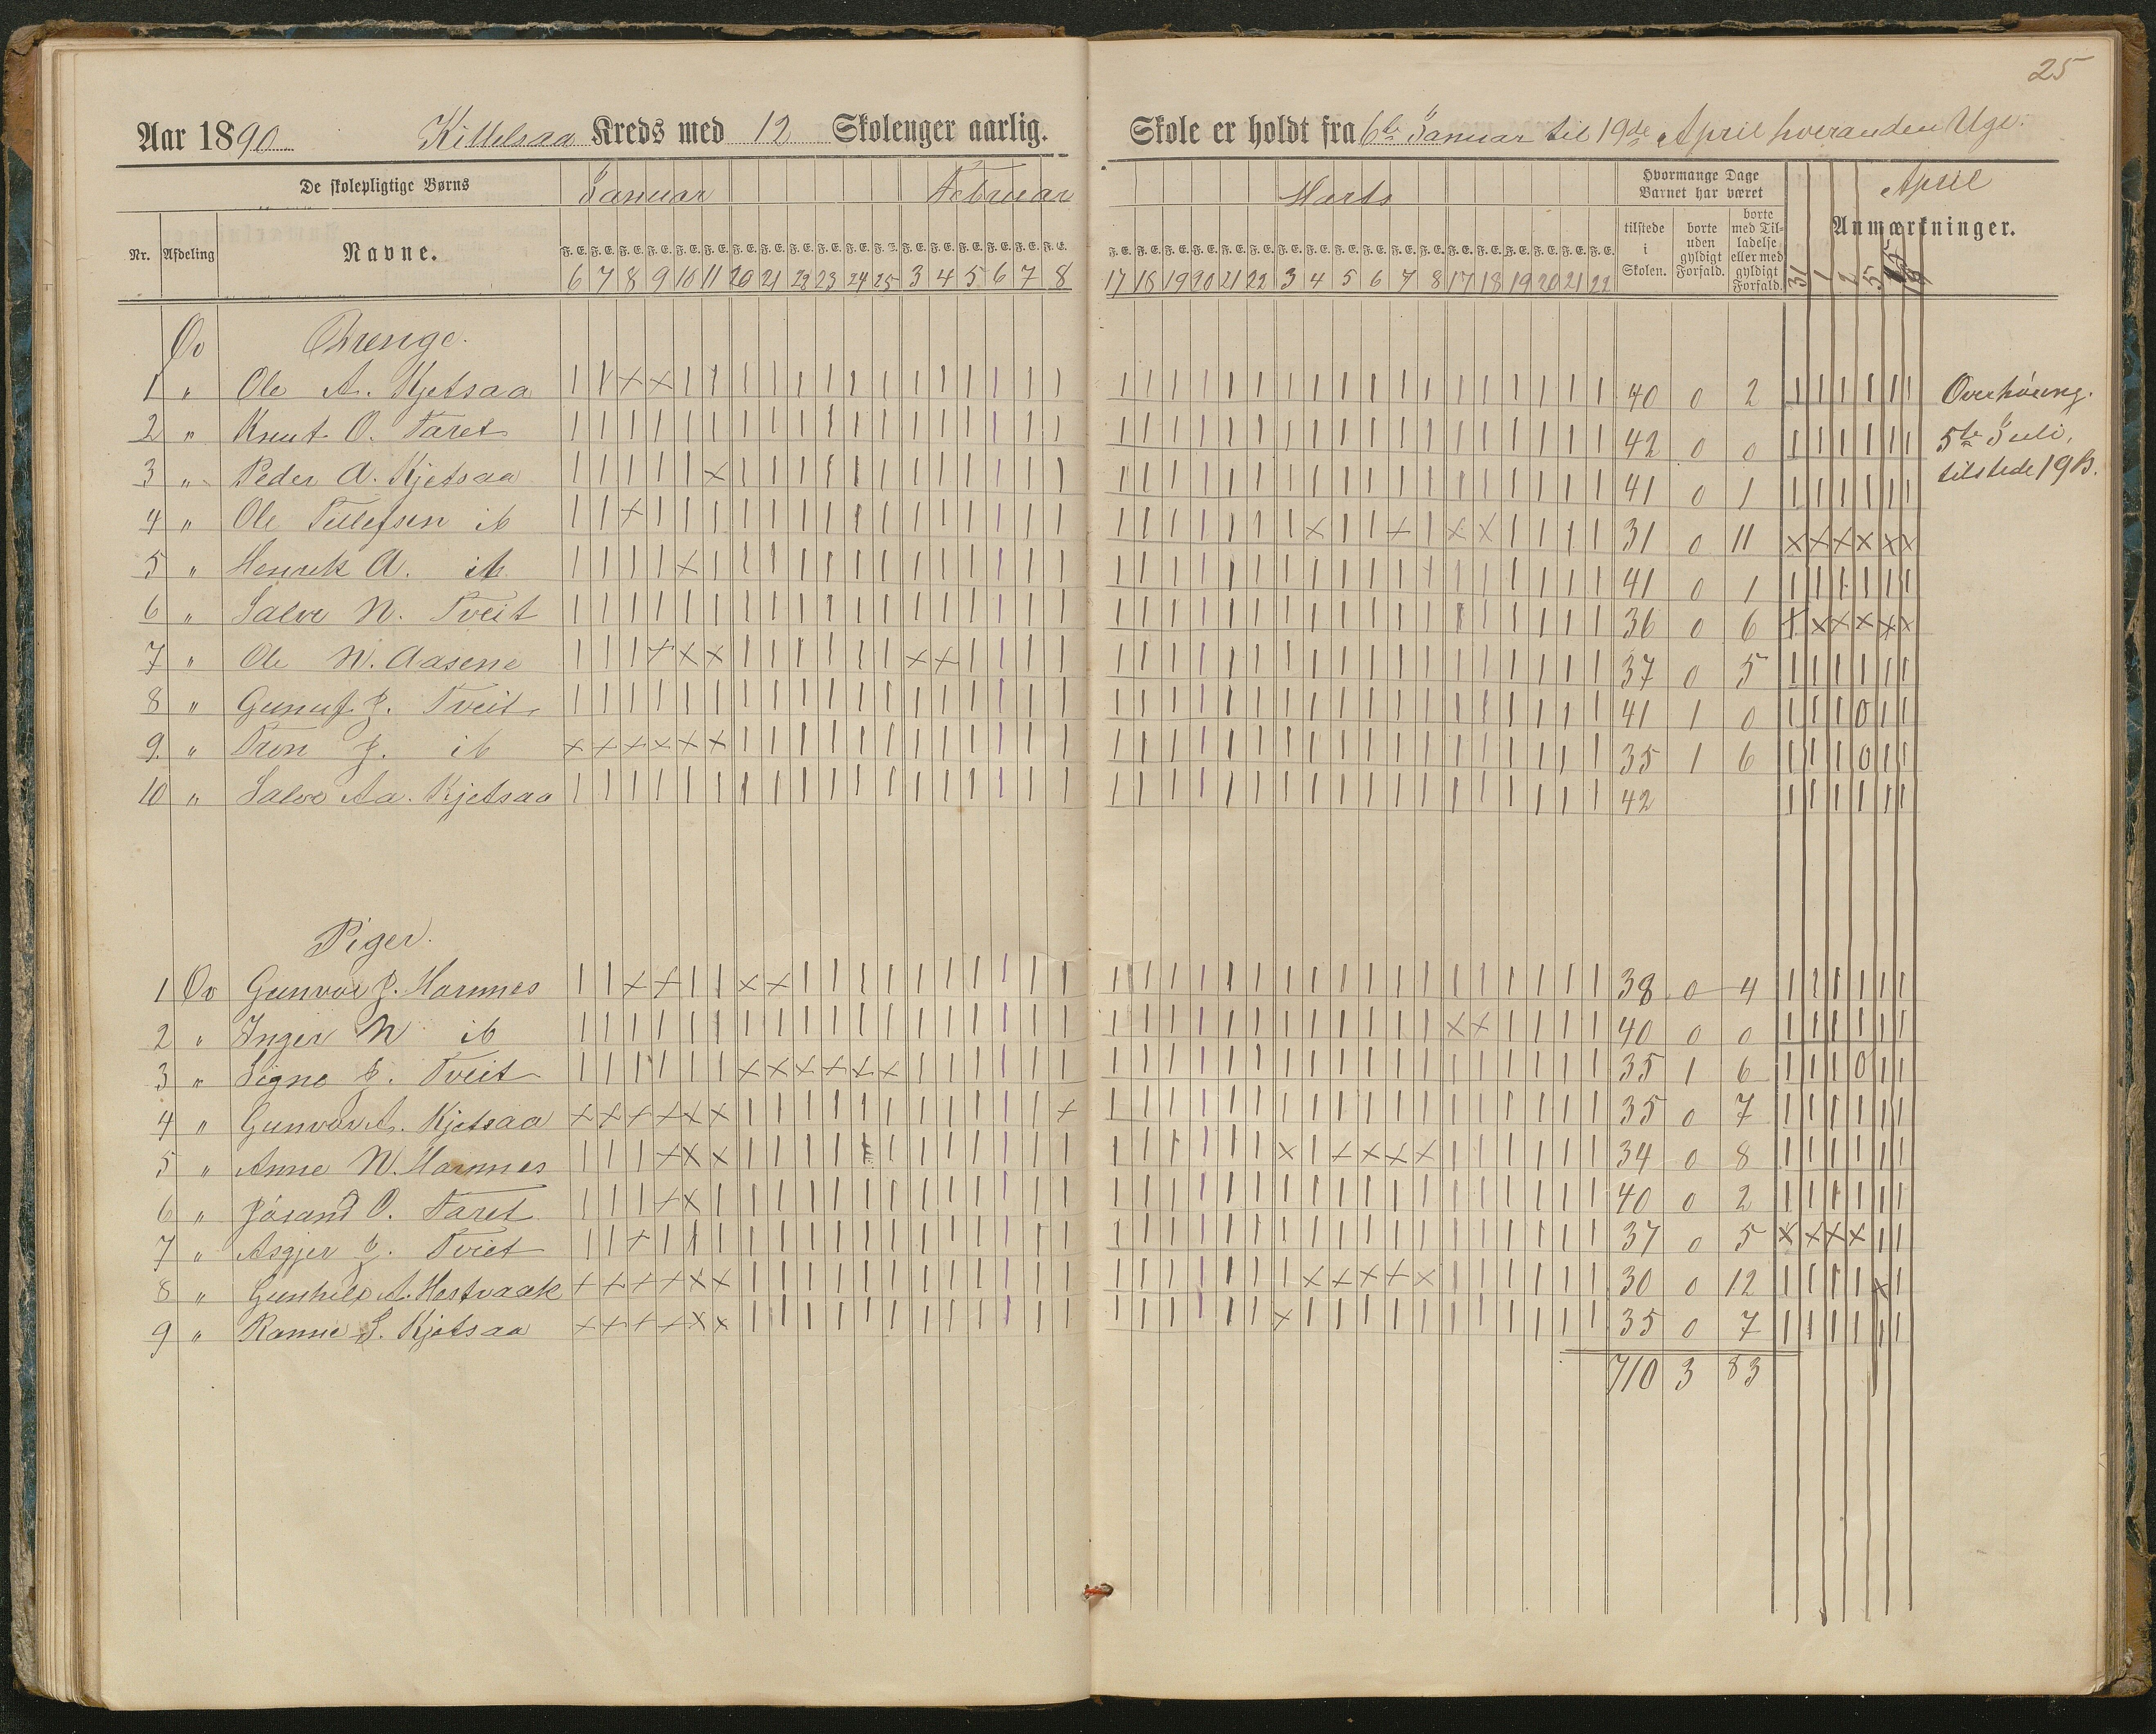 25
Aar 1890 Kittelsaa Kreds med 12 Skolenger aarlig. Skole er holdt fra 6te Januar til 19de April hveranden Uge.
De skolepligtige Børns Januar Februar Marts Hvormange Dage Barnet har været April
Nr. Afdeling Navne. F. E. F. E. F. E. F. E. F. E. F. E. F. E. F. E. F. E. F. E. F. E. F. E. F. E. F. E. F. E. F. E. F. E. F. E. F. E. F. E. F. E. F. E. F. E. F. E. F. E. F. E. F. E. F. E. F. E. F. E. F. E. F. E. F. E. F. E. F. E. F. E. tilstede i Skolen. borte uden gyldigt Forfald. borte med Tilladelse eller med gyldigt Forfald. Anmærkninger.
6 7 8 9 10 11 20 21 22 23 24 25 3 4 5 6 7 8 17 18 19 20 21 22 3 4 5 6 7 8 17 18 19 20 21 22 31 1 2 5
Ov Drenge.
1 " Ole A. Kjetsaa | | x x | | | | | | | | | | | | | | | | | | | | | | | | | | | | | | | | 40 0 2 | | | | | | Overhøring.
2 " Knut O. Faret | | | | | | | | | | | | | | | | | | | | | | | | | | | | | | | | | | | | 42 0 0 | | | | | | 5te Juli,
3 " Peder A. Kjetsaa | | | | | x | | | | | | | | | | | | | | | | | | | | | | | | | | | | | | 41 0 1 | | | | | | tilstede 19 B.
4 " Ole Tellefsen ib | | x | | | | | | | | | | | | | | | | | | | | | | x | | x | x x | | | | 31 0 11 x x x x x x
5 " Henrik A. ib | | | | x | | | | | | | | | | | | | | | | | | | | | | | | | | | | | | | 41 0 1 | | | | | |
6 " Salve N. Tveit | | | | | | | | | | | | | | | | | | | | | | | | | | | | | | | | | | | | 36 0 6 x x x x x x
7 " Ole N. Aasene | | | x x x | | | | | | x x | | | | | | | | | | | | | | | | | | | | | | 37 0 5 | | | | | |
8 " Gunuf J. Tveit | | | | | | | | | | | | | | | | | | | | | | | | | | | | | | | | | | | | 41 1 0 | | | 0 | |
9. " Tron J. ib x x x x x x | | | | | | | | | | | | | | | | | | | | | | | | | | | | | | 35 1 6 | | | 0 | |
10 " Salve Aa. Kjetsaa | | | | | | | | | | | | | | | | | | | | | | | | | | | | | | | | | | | | 42 | | | | | |
Piger.
1 Ov Gunvor J. Hamnes | | x x | | x x | | | | | | | | | | | | | | | | | | | | | | | | | | | | 38 0 4 | | | | | |
2 " Inger N ib | | | | | | | | | | | | | | | | | | | | | | | | | | | | | | x x | | | | 40 0 0 | | | | | |
3 " Signe J. Tveit | | | | | | x x x x x x | | | | | | | | | | | | | | | | | | | | | | | | 35 1 6 | | | 0 | |
4 " Gunvor A. Kjetsaa x x x x x x | | | | | | | | | | | x | | | | | | | | | | | | | | | | | | 35 0 7 | | | | | |
5 " Anne N. Hamnes | | | x x x | | | | | | | | | | | | | | | | | | x | x x x x | | | | | | 34 0 8 | | | | | |
6 " Jórand O. Faret | | | x x | | | | | | | | | | | | | | | | | | | | | | | | | | | | | | | 40 0 2 | | | | | |
7 " Asgjer J. Tviet | | x | | | | | | | | | | | | | | | | | | | | | | | | | | | | | | | | | 37 0 5 x x x x | |
8 " Gunhild A. Hestvaak x x x x x x | | | | | | | | | | | | | | | | | | | x x x x x | | | | | | 30 0 12 | | | | x |
9 " Ranne S. Kjetsaa x x x x x x | | | | | | | | | | | | | | | | | | x | | | | | | | | | | | 35 0 7 | | | | | |
710 3 83